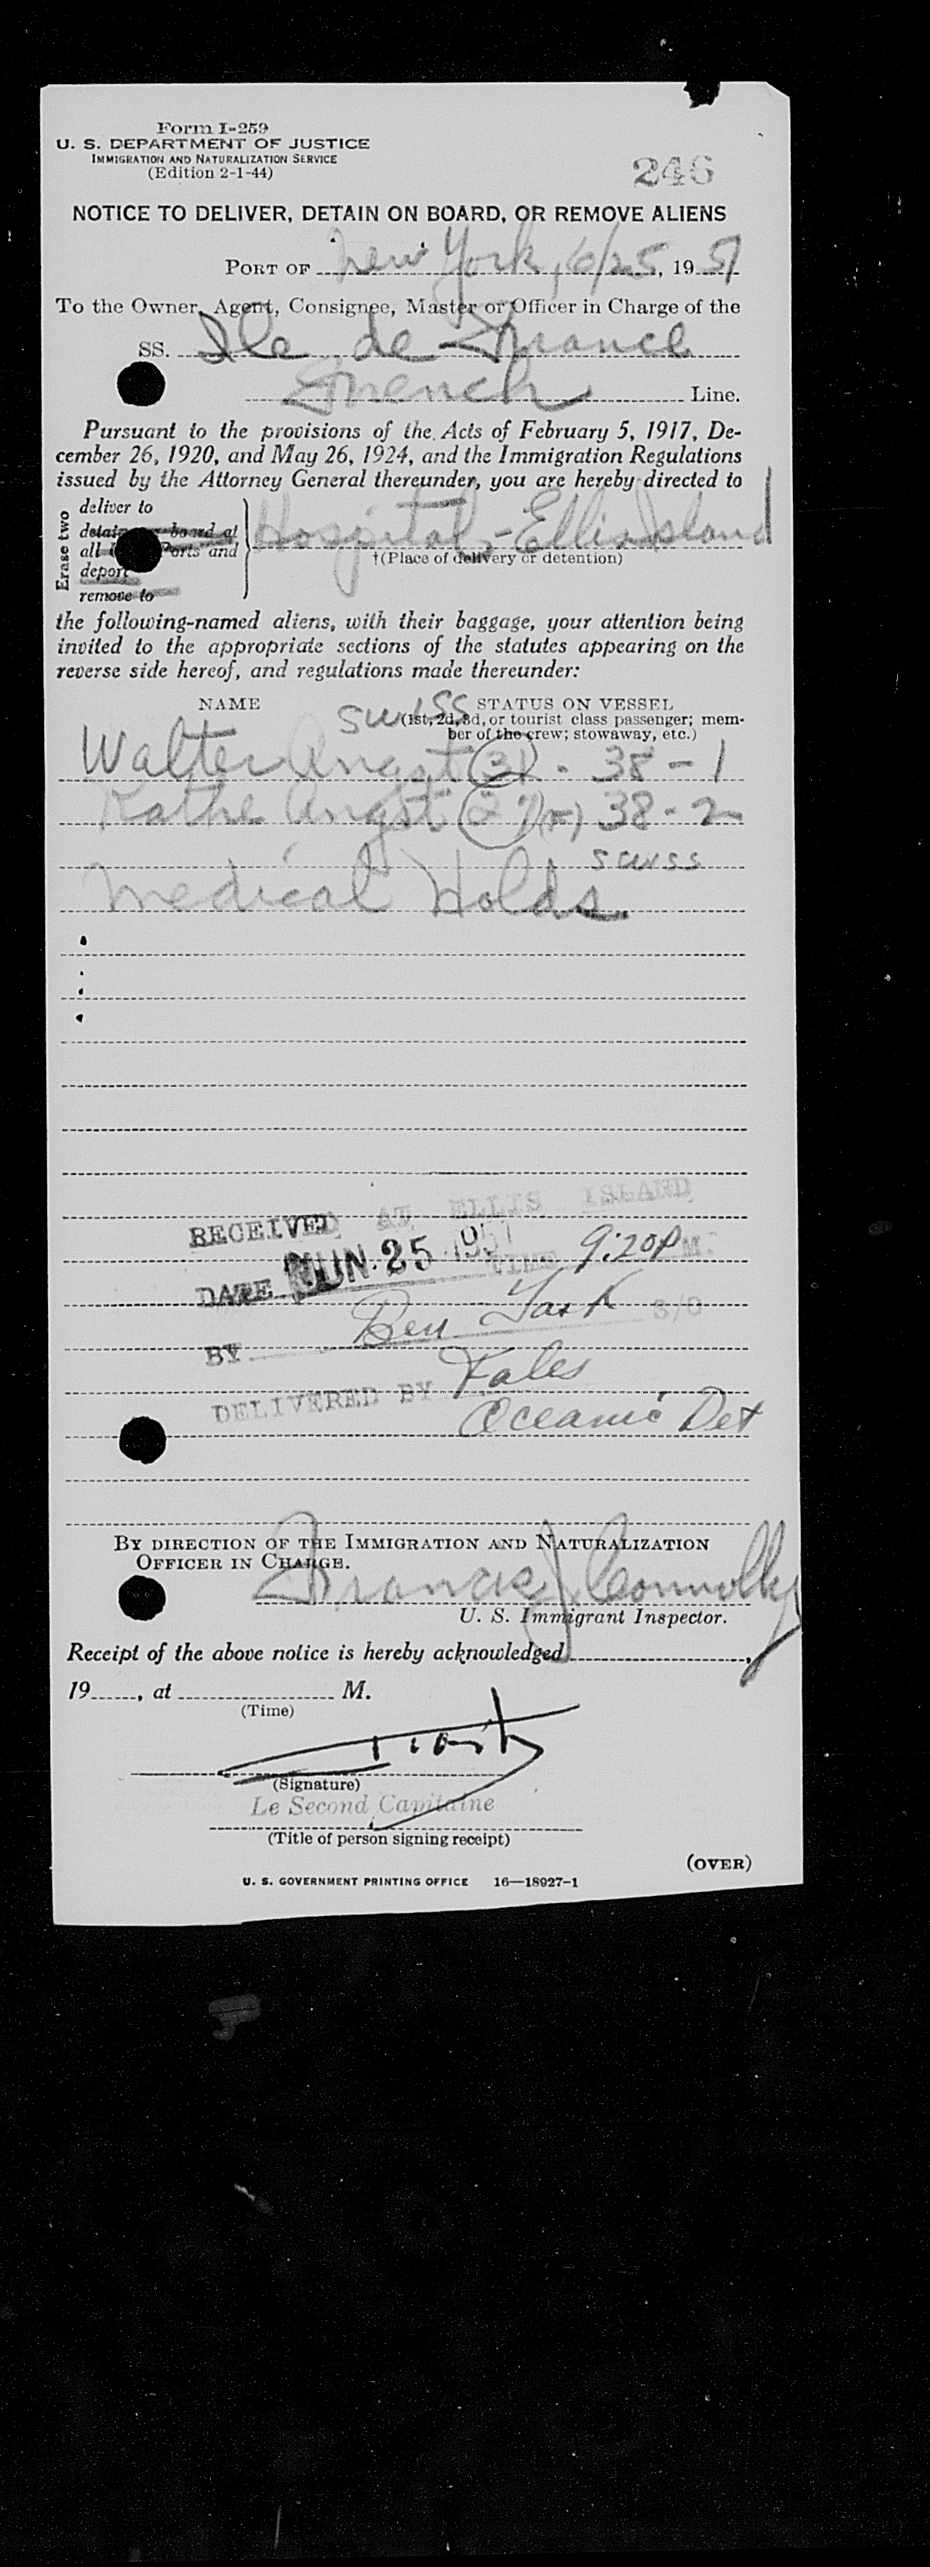 Form I-259
U. S. DEPARTMENT OF JUSTICE
IMMIGRATION AND NATURALIZATION SERVICE
(Edition 2-1-44)
246
NOTICE TO DELIVER, DETAIN ON BOARD, OR REMOVE ALIENS
PORT OF New York, 6/25, 1951
To the Owner, Agent, Consignee, Master or Officer in Charge of the
SS. Ile de France
French Line.
Pursuant to the provisions of the Acts of February 5, 1917, De-
cember 26, 1920, and May 26, 1924, and the Immigration Regulations
issued by the Attorney General thereunder, you are hereby directed to
Erase two
deliver to
detain board at
all Ports and
deport
remove to
Hospital - Ellis Island
†(Place of delivery or detention)
the following-named aliens, with their baggage, your attention being
invited to the appropriate sections of the statutes appearing on the
reverse side hereof, and regulations made thereunder:
NAME STATUS ON VESSEL
swiss (1st, 2d, 3d, or tourist class passenger; mem-
ber of the crew; stowaway, etc.)
Walter Angst (31) - 38 - 1
Kathe Angst (27) 38 - 2
swiss
Medical Holds.
RECEIVED AT ELLIS ISLAND
DATE JUN 25 1951 TIME 9:20P M.
BY Ben S/O
DELIVERED BY Fales
Oceanic Det
BY DIRECTION OF THE IMMIGRATION AND NATURALIZATION
OFFICER IN CHARGE.
Francis J Connolly
U. S. Immigrant Inspector.
Receipt of the above notice is hereby acknowledged ,
19 , at M.
(Time)
(Signature)
Le Second Capitaine
(Title of person signing receipt)
(OVER)
U. S. GOVERNMENT PRINTING OFFICE 16—18927-1